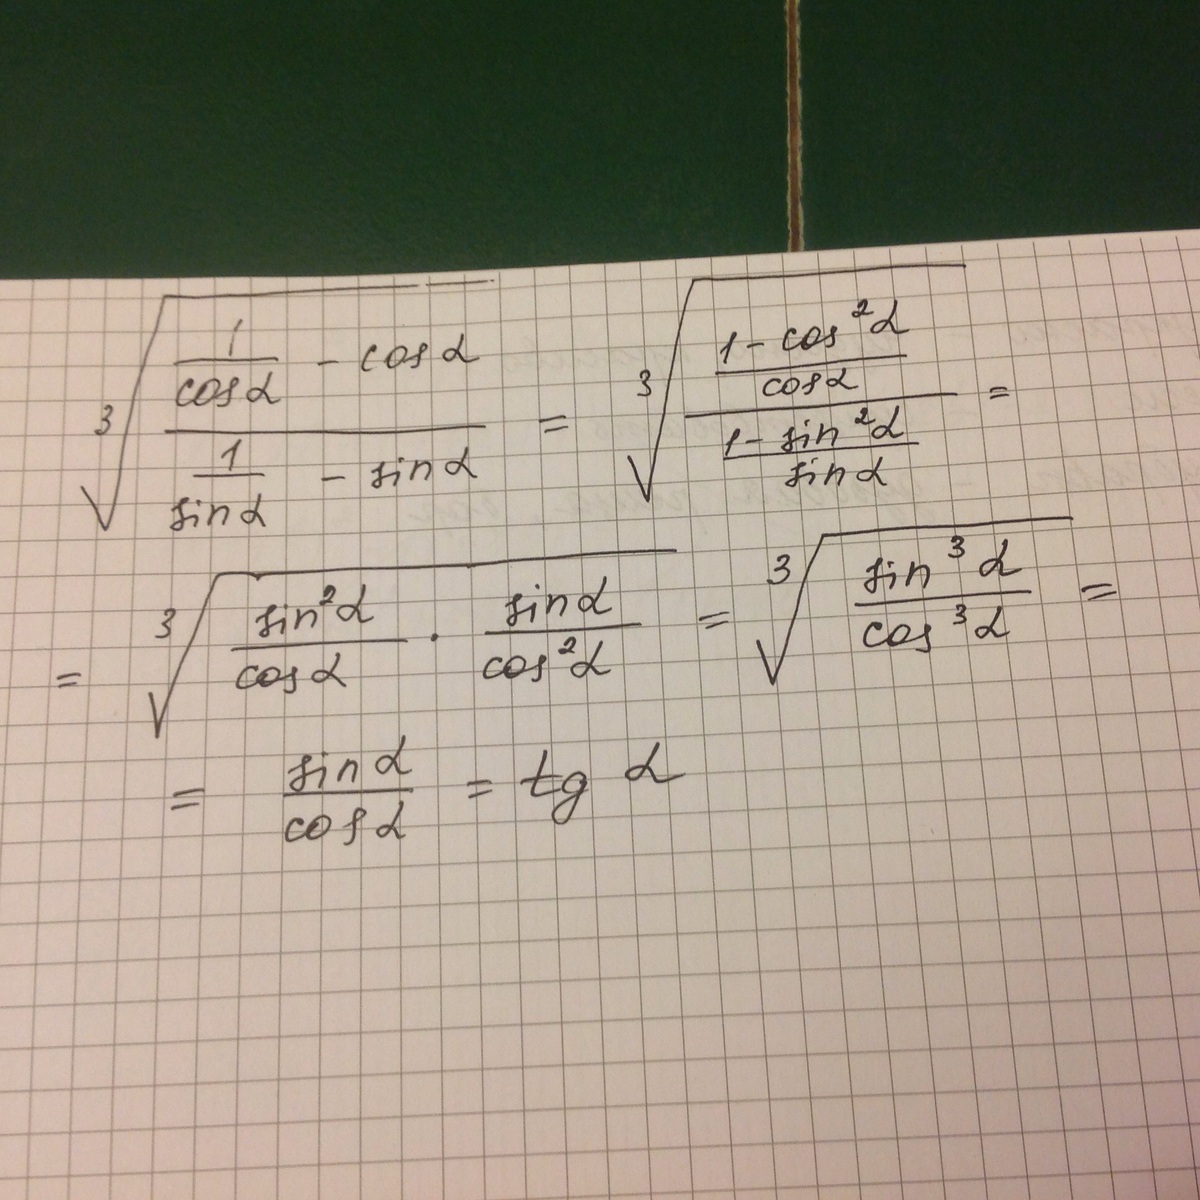 ∛((1/cos α − cos α)/(1/sin α − sin α)) = ∛(((1 − cos²α)/cos α)/((1 − sin²α)/sin α)) =
= ∛(sin²α/cos α · sin α/cos²α) = ∛(sin³α/cos³α) =
= sin α/cos α = tg α